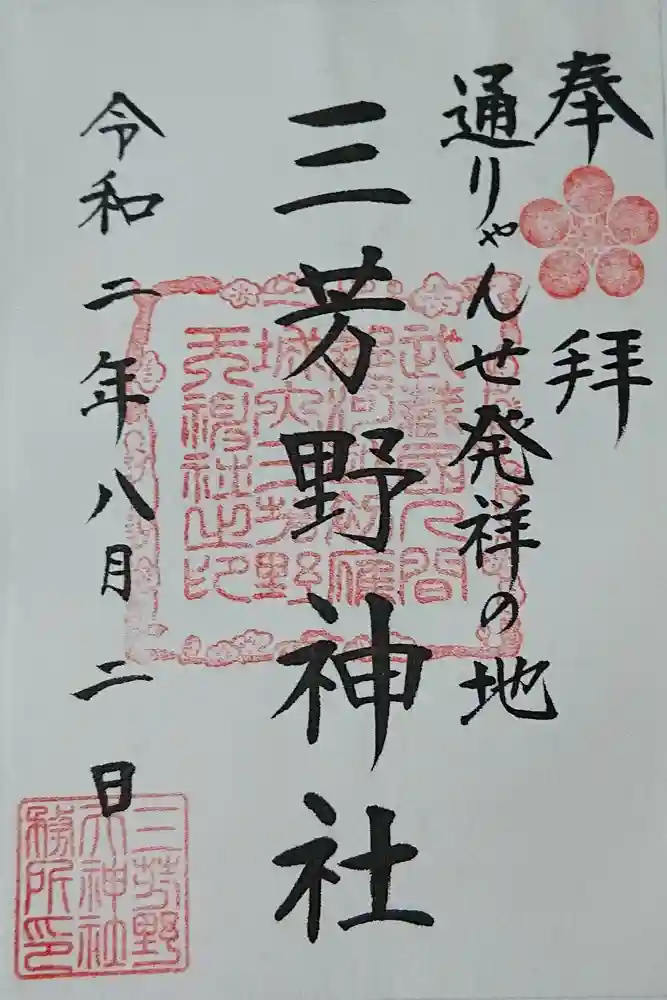 奉拝
通りゃんせ発祥の地
三芳野神社
令和二年八月二日
武蔵国入間
郡河越初雁
城内三芳野
天神社之印
三芳野
天神社
務所印